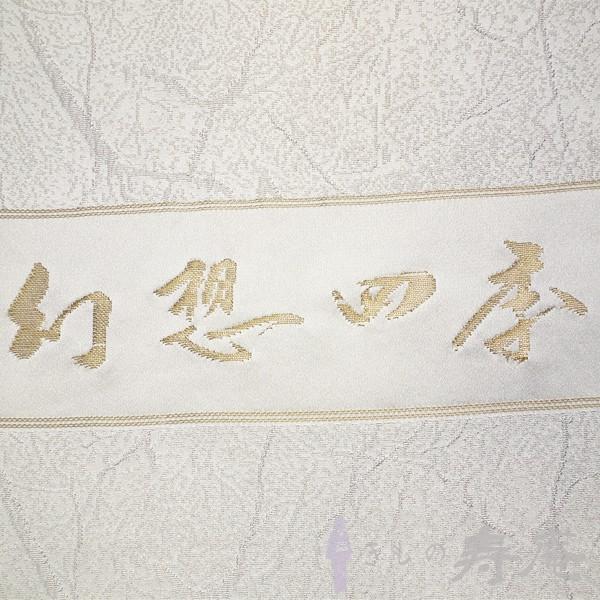 幻想四季
きもの 寿庵